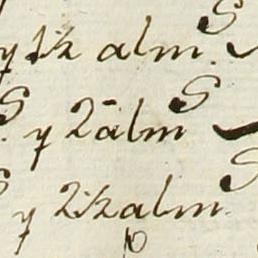 y 1½ alm.S
S. y 2 alm S
y 2½ alm S